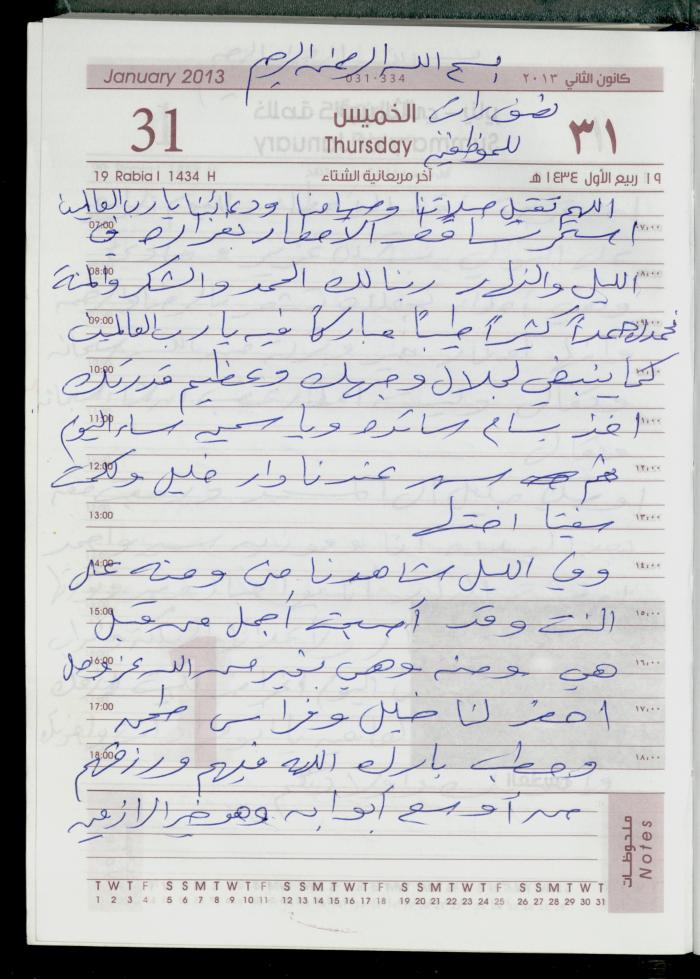 بسم الله الرحمن الرحيم
January 2013
031-334
كانون الثاني ٢٠١٣
31
الخميس
Thursday
نصف راتب
للموظفين
٣١
19 Rabia I 1434 H
آخر مربعانية الشتاء
١٩ ربيع الأول ١٤٣٤ هـ
اللهم تقبل صلاتنا وصيامنا ودعائنا يا رب العالمين
07:00 استمر تساقط الأمطار بغزارة في ٠٧:٠٠
08:00 الليل والنهار ربنا لك الحمد والشكر والمنة ٠٨:٠٠
09:00 نحمدك حمداً كثيراً طيباً مباركاً فيه يا رب العالمين
10:00 كما ينبغي لجلال وجهك وعظيم قدرتك ١٠:٠٠
11:00 اخذ بسام سائده ويا سمين مساء اليوم ١١:٠٠
12:00 ثم سهر عندنا دار خليل ١٢:٠٠
13:00 اختها ١٣:٠٠
14:00 وفي الليل شاهدنا من ومنه على ١٤:٠٠
15:00 النت وقد أصبحت أجمل من قبل ١٥:٠٠
16:00 هي ومنه وهي بخير من الله عز وجل ١٦:٠٠
17:00 احضر لنا خليل وفراس طحين ١٧:٠٠
18:00 وحطب بارك الله فيهم ورزقهم ١٨:٠٠
من أوسع أبوابه وهو خير الرازقين
ملحوظات
Notes
T W T F S S M T W T F S S M T W T F S S M T W T F S S M T W T
1 2 3 4 5 6 7 8 9 10 11 12 13 14 15 16 17 18 19 20 21 22 23 24 25 26 27 28 29 30 31